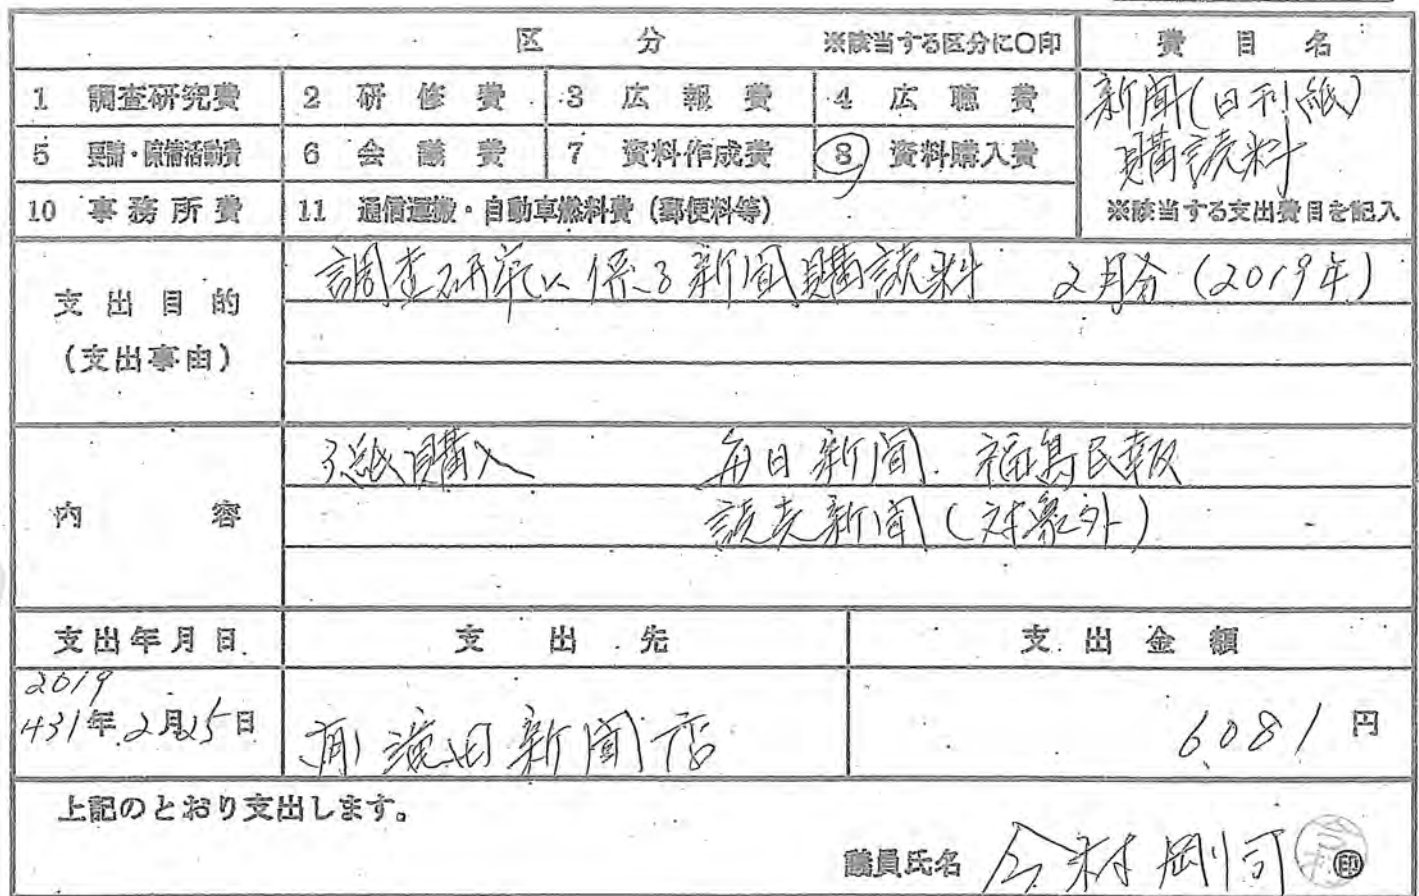 区 分 ※該当する区分に○印 費 目 名
1 調査研究費 2 研 修 費 3 広 報 費 4 広 聴 費
新聞(日刊紙)
購読料
5 要請・陳情活動費 6 会 議 費 7 資料作成費 8 資料購入費
10 事務所費 11 通信運搬・自動車燃料費(郵便料等)
※該当する支出費目を記入
支出目的
(支出事由)
調査研究に係る新聞購読料 2月分(2019年)
内 容
3紙購入 毎日新聞. 福島民報
読売新聞(対象外)
支出年月日 支 出 先 支 出 金 額
2019
31年2月25日
新聞店
6081円
上記のとおり支出します。
議員氏名 今村剛司 印